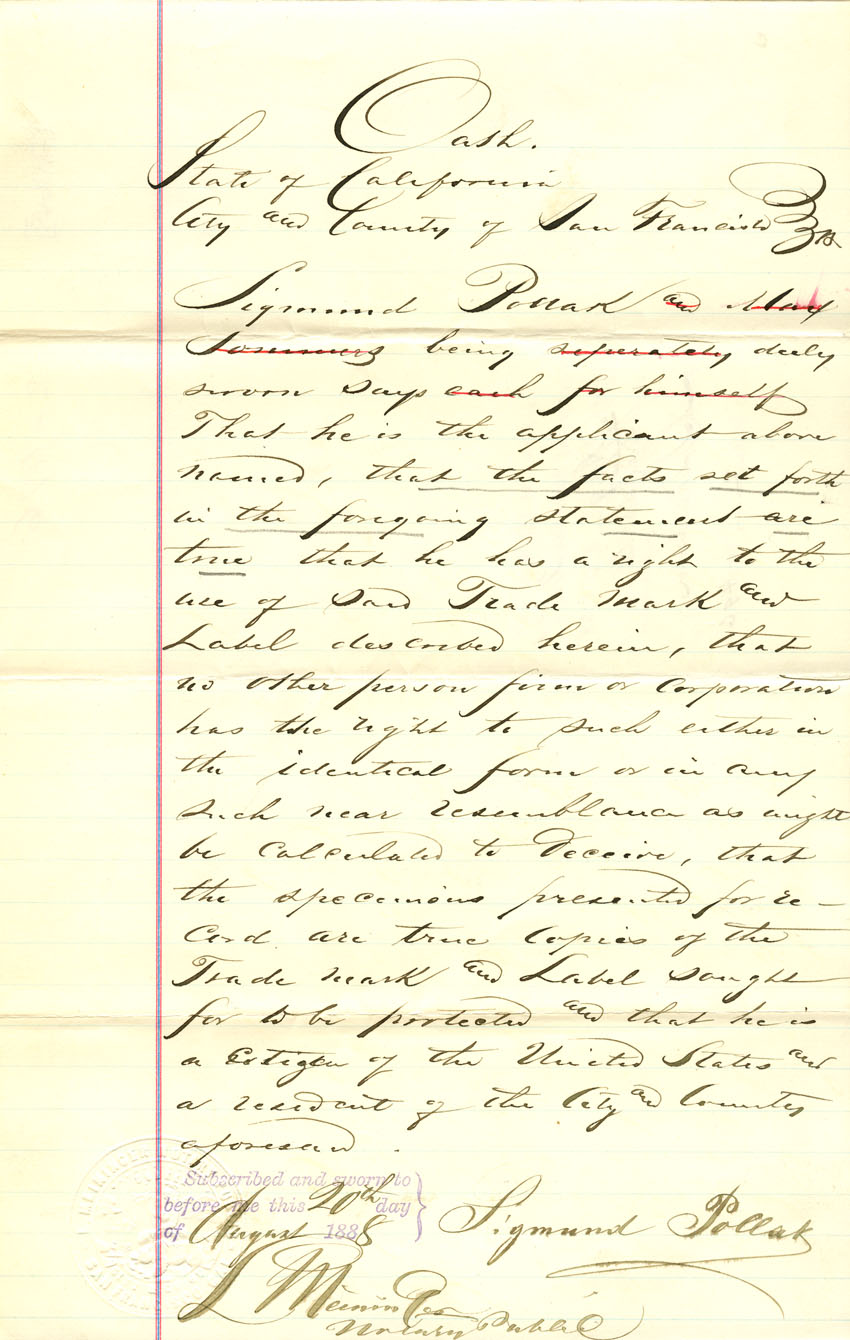 Oath.
State of California
City and County of San Francisco } ss
Sigmund Pollak and Max
Sommers being seperately duly
sworn says each for himself
That he is the applicant above
named, that the facts set forth
in the foregoing statement are
true that he has a right to the
use of said Trade Mark and
Label described herein, that
no other person firm or Corporation
has the right to such either in
the identical form or in any
such near resemblance as might
be Calculated to Deceive, that
the specimens presented for re-
Cord are true Copies of the
Trade Mark and Label sought
for to be protected and that he is
a Citizen of the United States and
a resident of the City and County
aforesaid.
Subscribed and sworn to
before me this 20th day
of August 1888
Sigmund Pollak
Notary Public